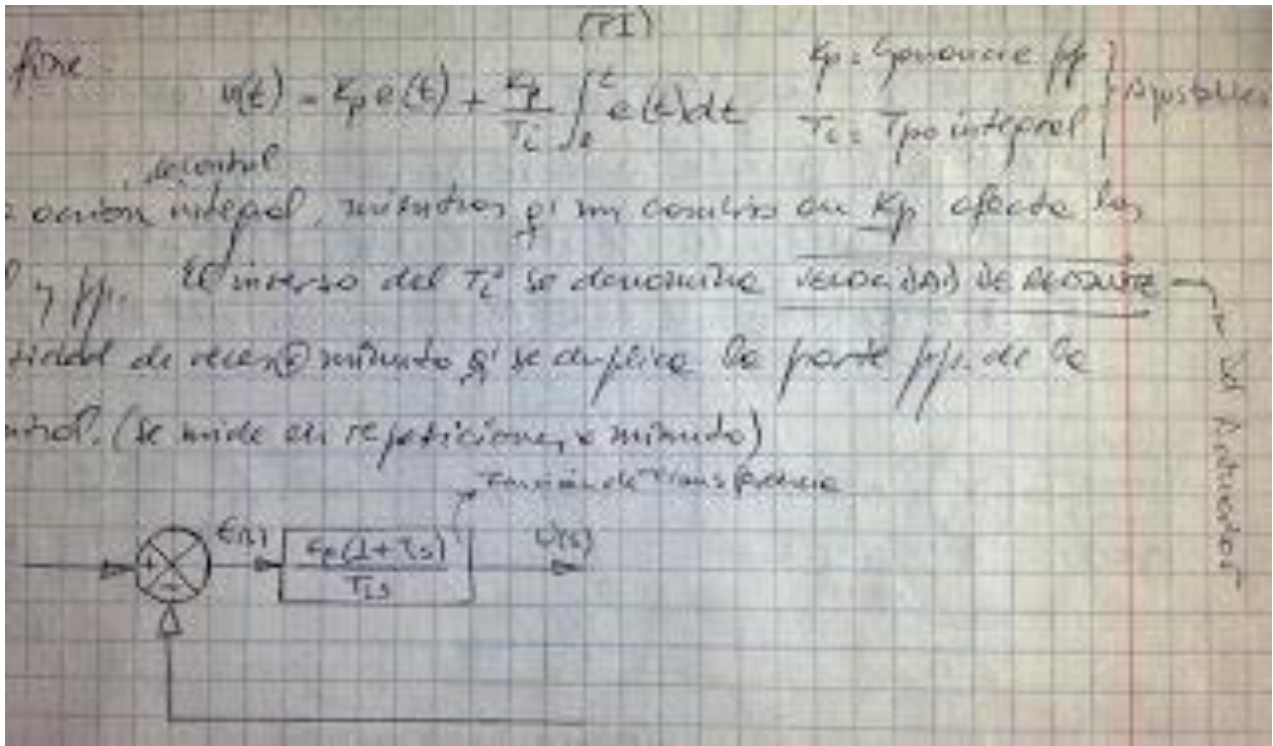 (PI)
fine:
u(t) = Kp e(t) + Kp/Ti ∫ e(t)dt
Kp = Ganancia pp
Ti = Tpo integral
Ajustables
control
acción integral, mientras q' un cambio en Kp afecta las
y pp. El inverso del Ti se denomina VELOCIDAD DE REAJUSTE
tidad de veces minuto q' se duplica la parte pp. de la
ntrol. (se mide en repeticiones x minuto)
Función de Transferencia
+
-
E(s)
Kp(1+Tis)
Tis
U(s)
Actuador